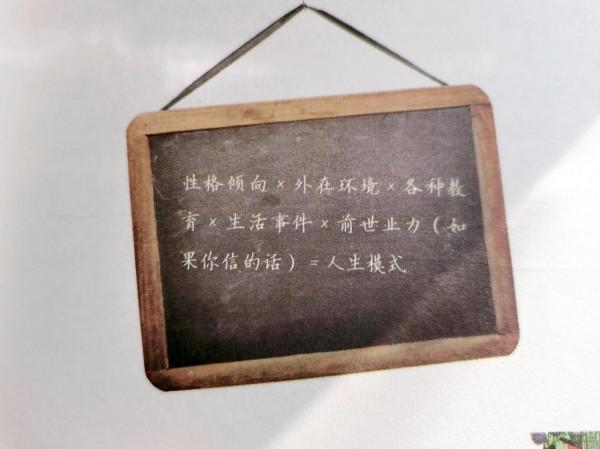 性格倾向×外在环境×各种教
育×生活事件×前世业力（如
果你信的话）=人生模式